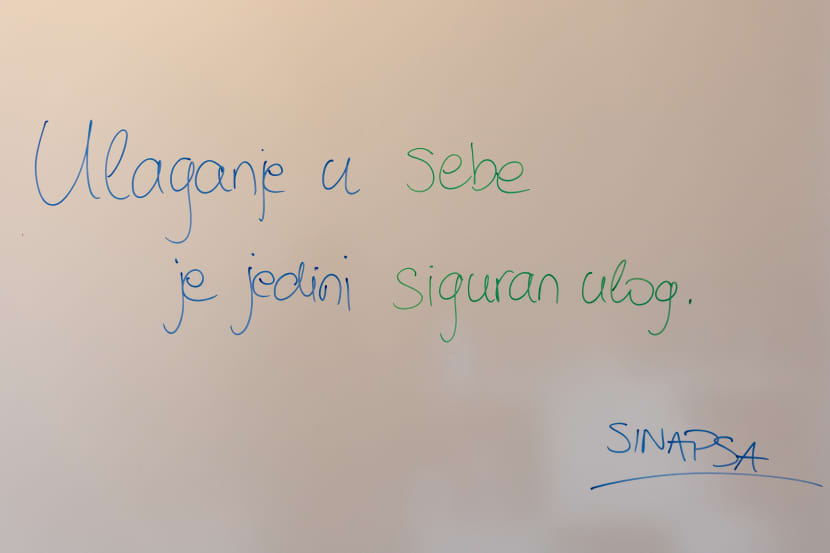 Ulaganje u sebe
je jedini siguran ulog.
SINAPSA